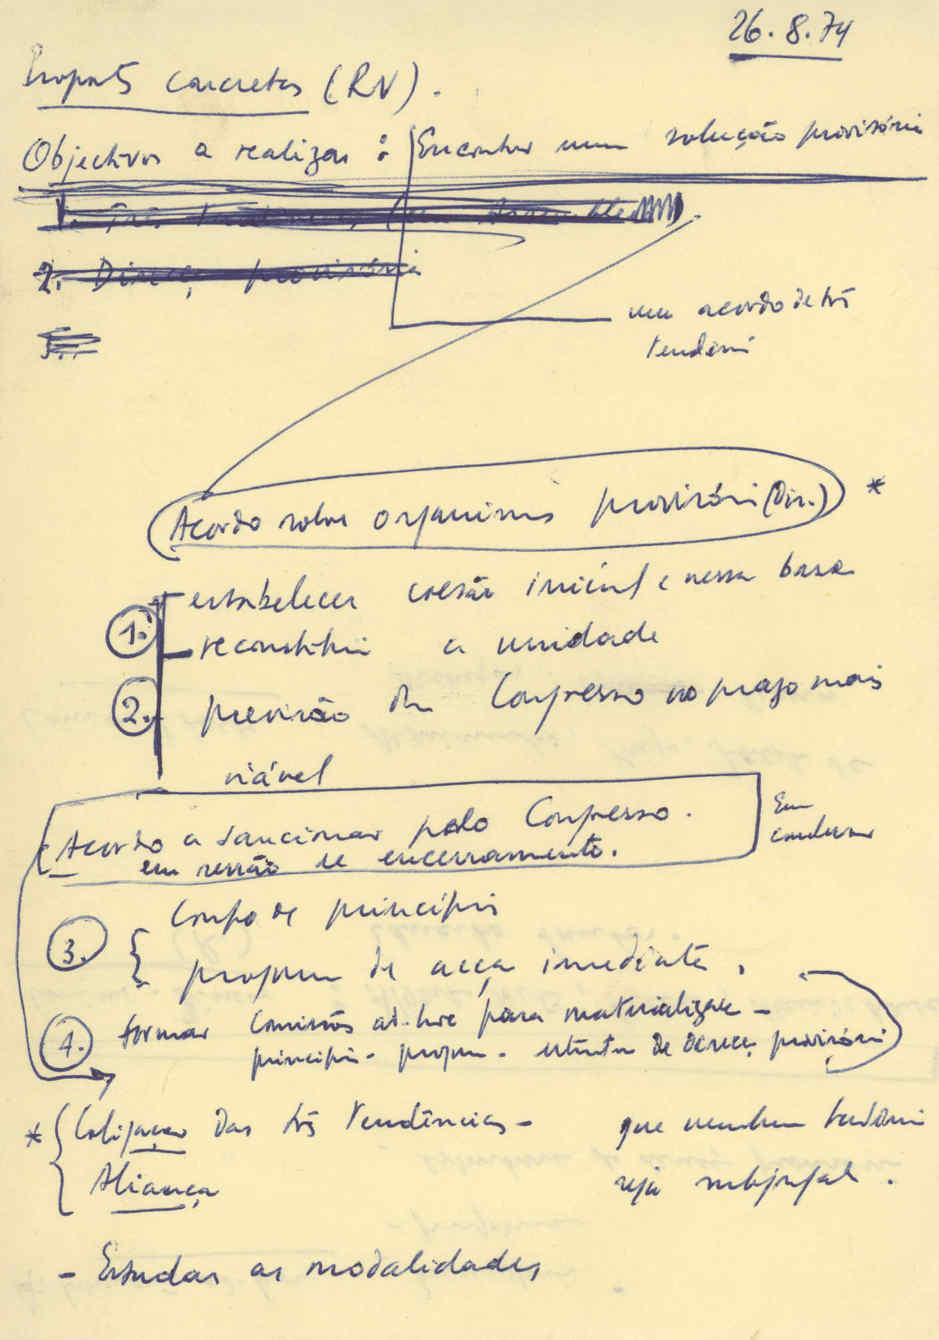 26.8.74
Propost concretas (RN).
Objectivos a realizar: Encontrar uma solução provisória
1. Três
2. Direcç provisória
um acordo de três
tendênci
Acordo sobre organismo provisóri (Dir.) *
estabelecer coesão inicial e nessa base
1. reconstituir a unidade
2. previsão dum Congresso no prazo mais
viável
Acordo a sancionar pelo Congresso.
em sessão de encerramento.
Em
condensar
Corpo de princípios
3. { program de acçã imediata.
4. formar Comissões ad-hoc para materializar -
princípi - program - estrutu de direcç provisóri
* { Coligação das três tendências - que nenhum tendênci
Aliança seja subjugada.
- Estudar as modalidades